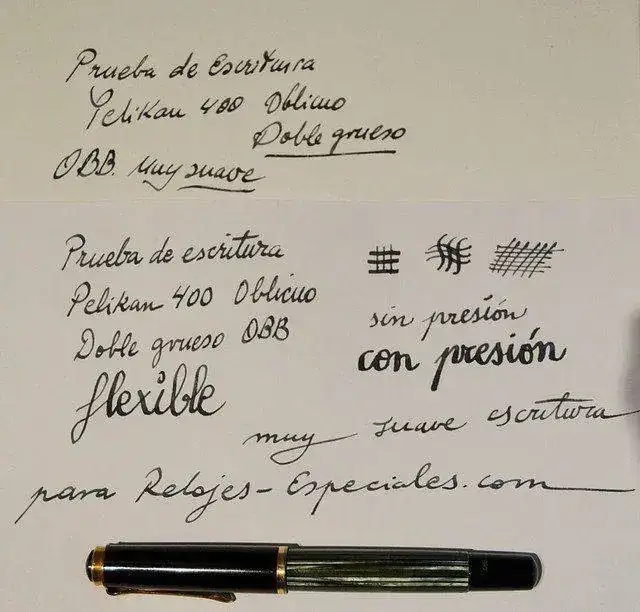 Prueba de Escritura
Pelikan 400 Oblicuo
Doble grueso
OBB. muy suave
Prueba de escritura
Pelikan 400 Oblicuo
Doble grueso OBB
flexible
sin presión
con presión
muy suave escritura
para Relojes-Especiales.com